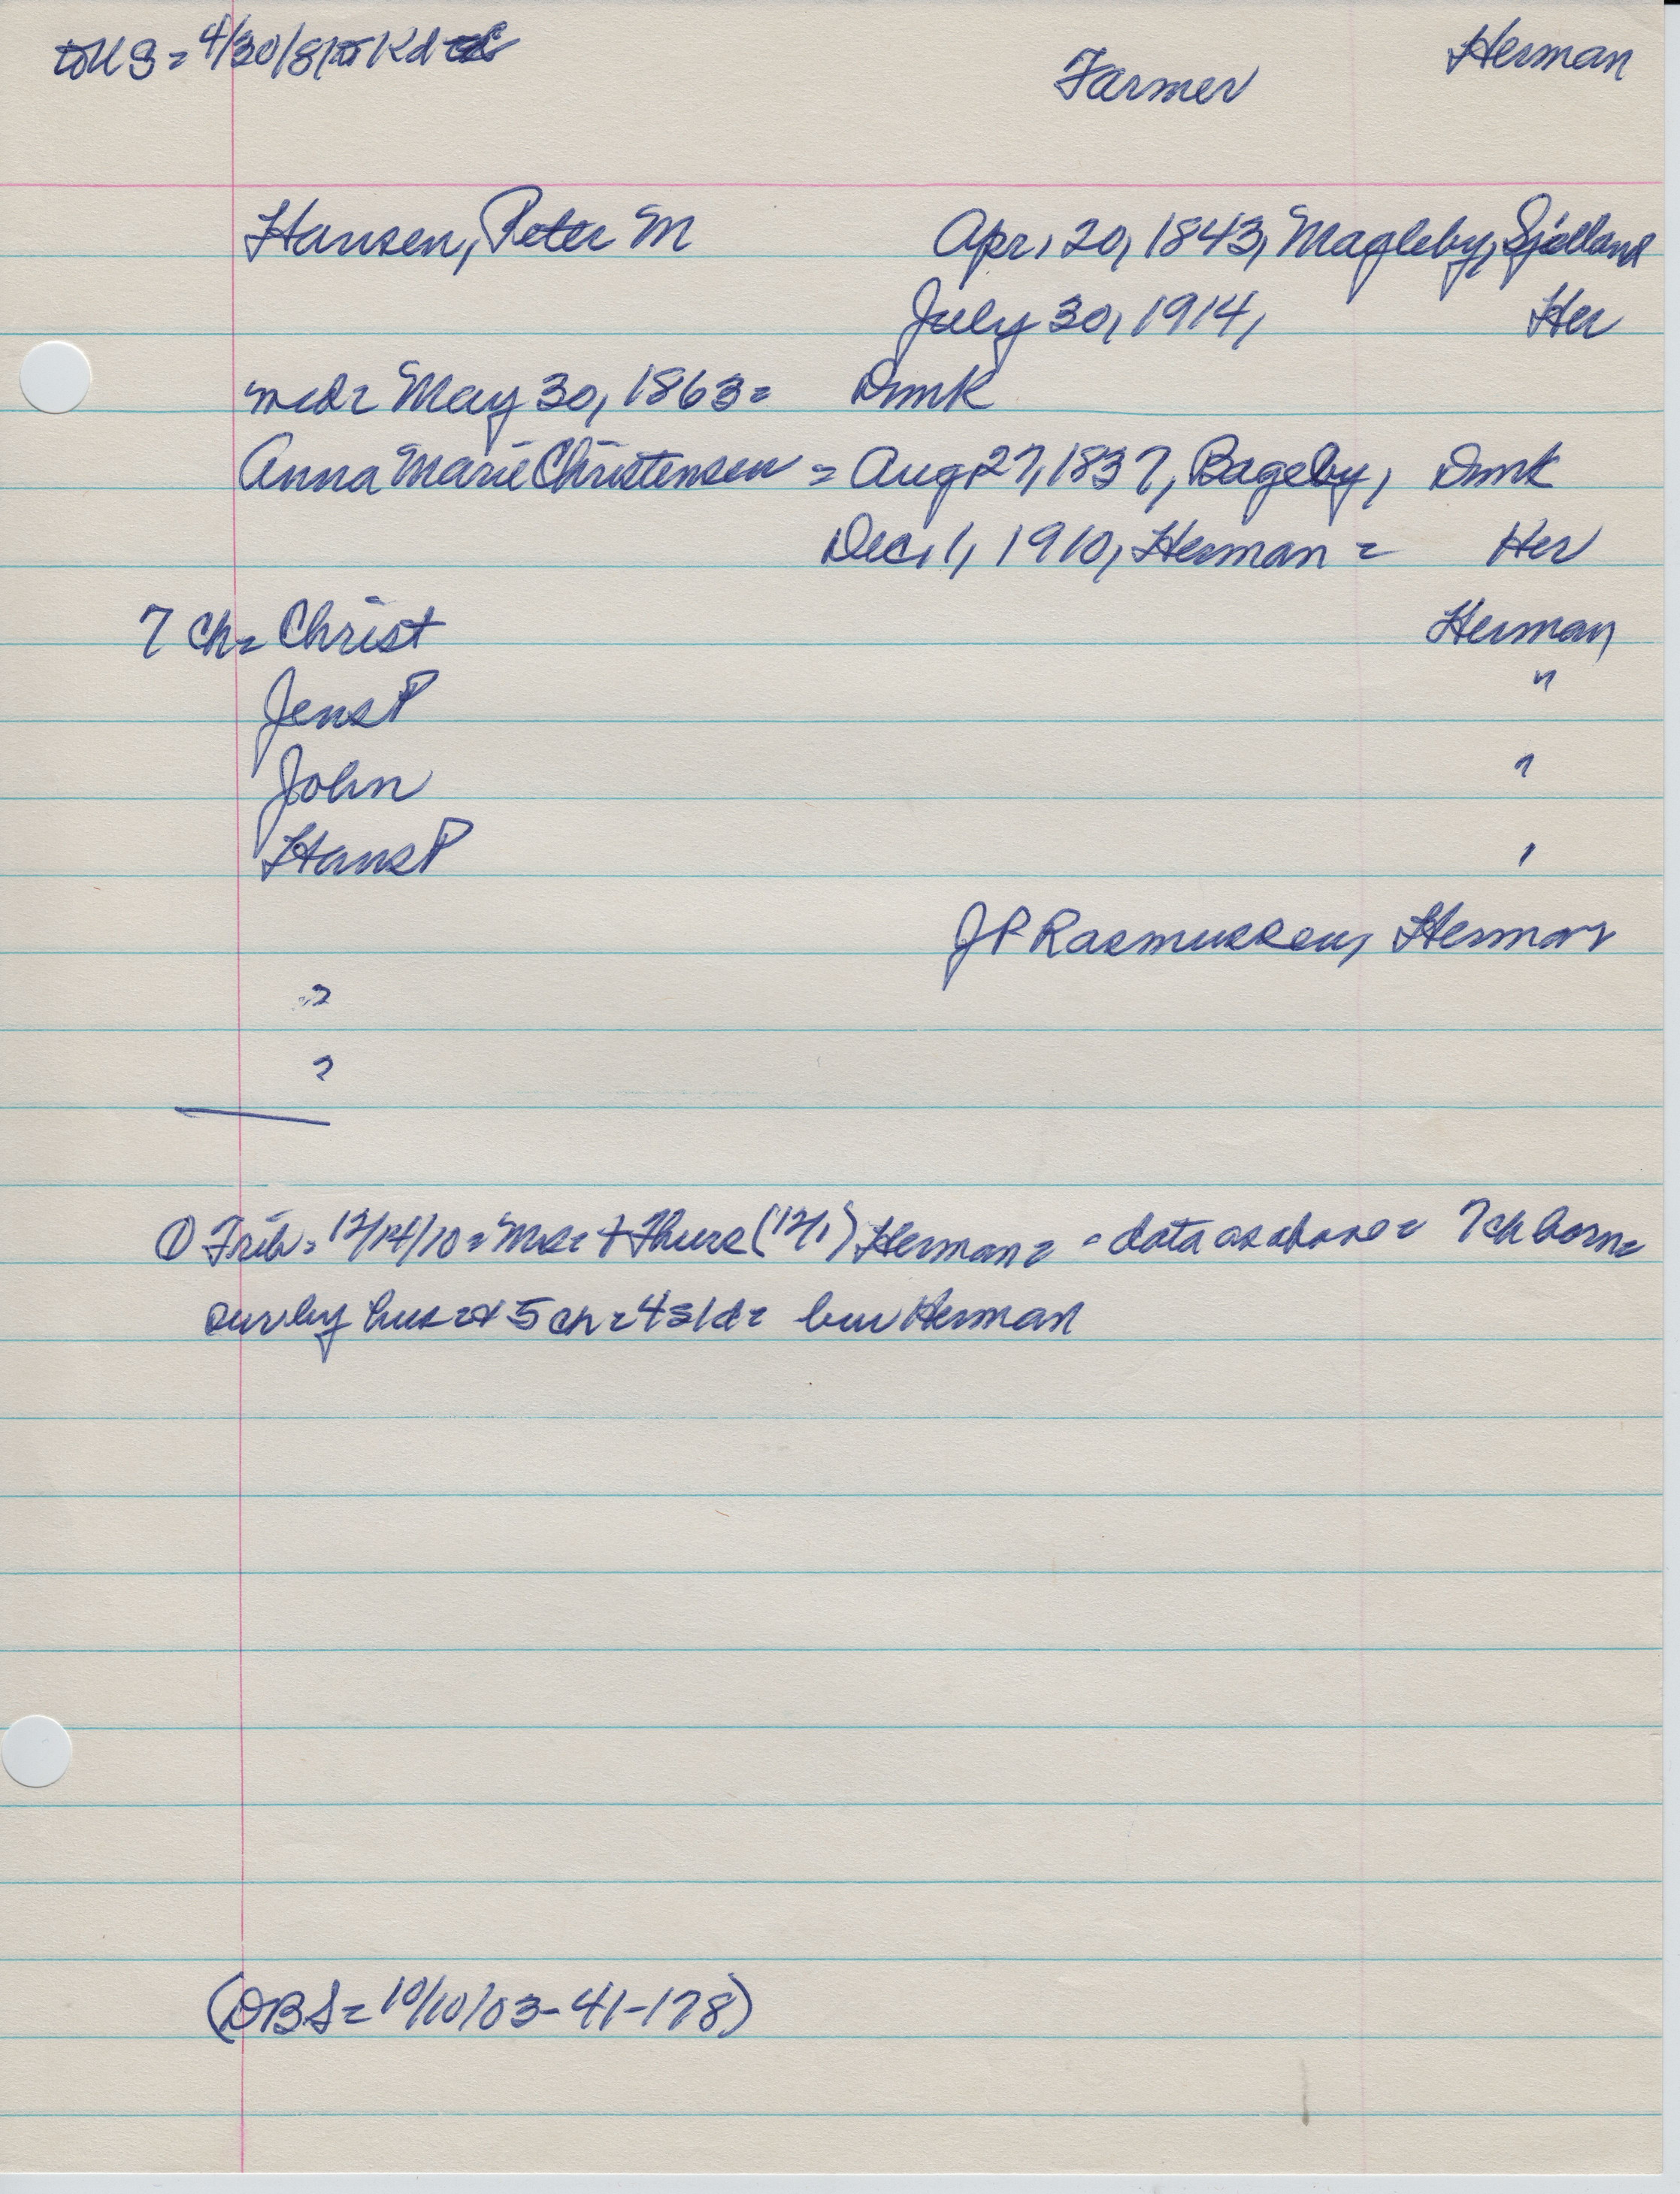 to U S = 4/30/81
Farmer
Herman
Hansen, Peter M
Apr, 20, 1843, Magleby, Sjælland
July 30, 1914, Her
md = May 30, 1863 = Dmk
Anna Marie Christensen = Aug 27, 1837, Bageby, Dmk
Dec, 1, 1910, Herman = Her
7 ch = Christ Herman
Jens P "
John "
Hans P "
J P Rasmussen, Herman
?
?
① Trib = 12/14/10 = Mrs = + Thurs (12/1) Herman = - data as above = 7 ch born =
surv by hus = + 5 ch = 4 s 1 d = bur Herman
(DBS = 10/10/03-41-178)